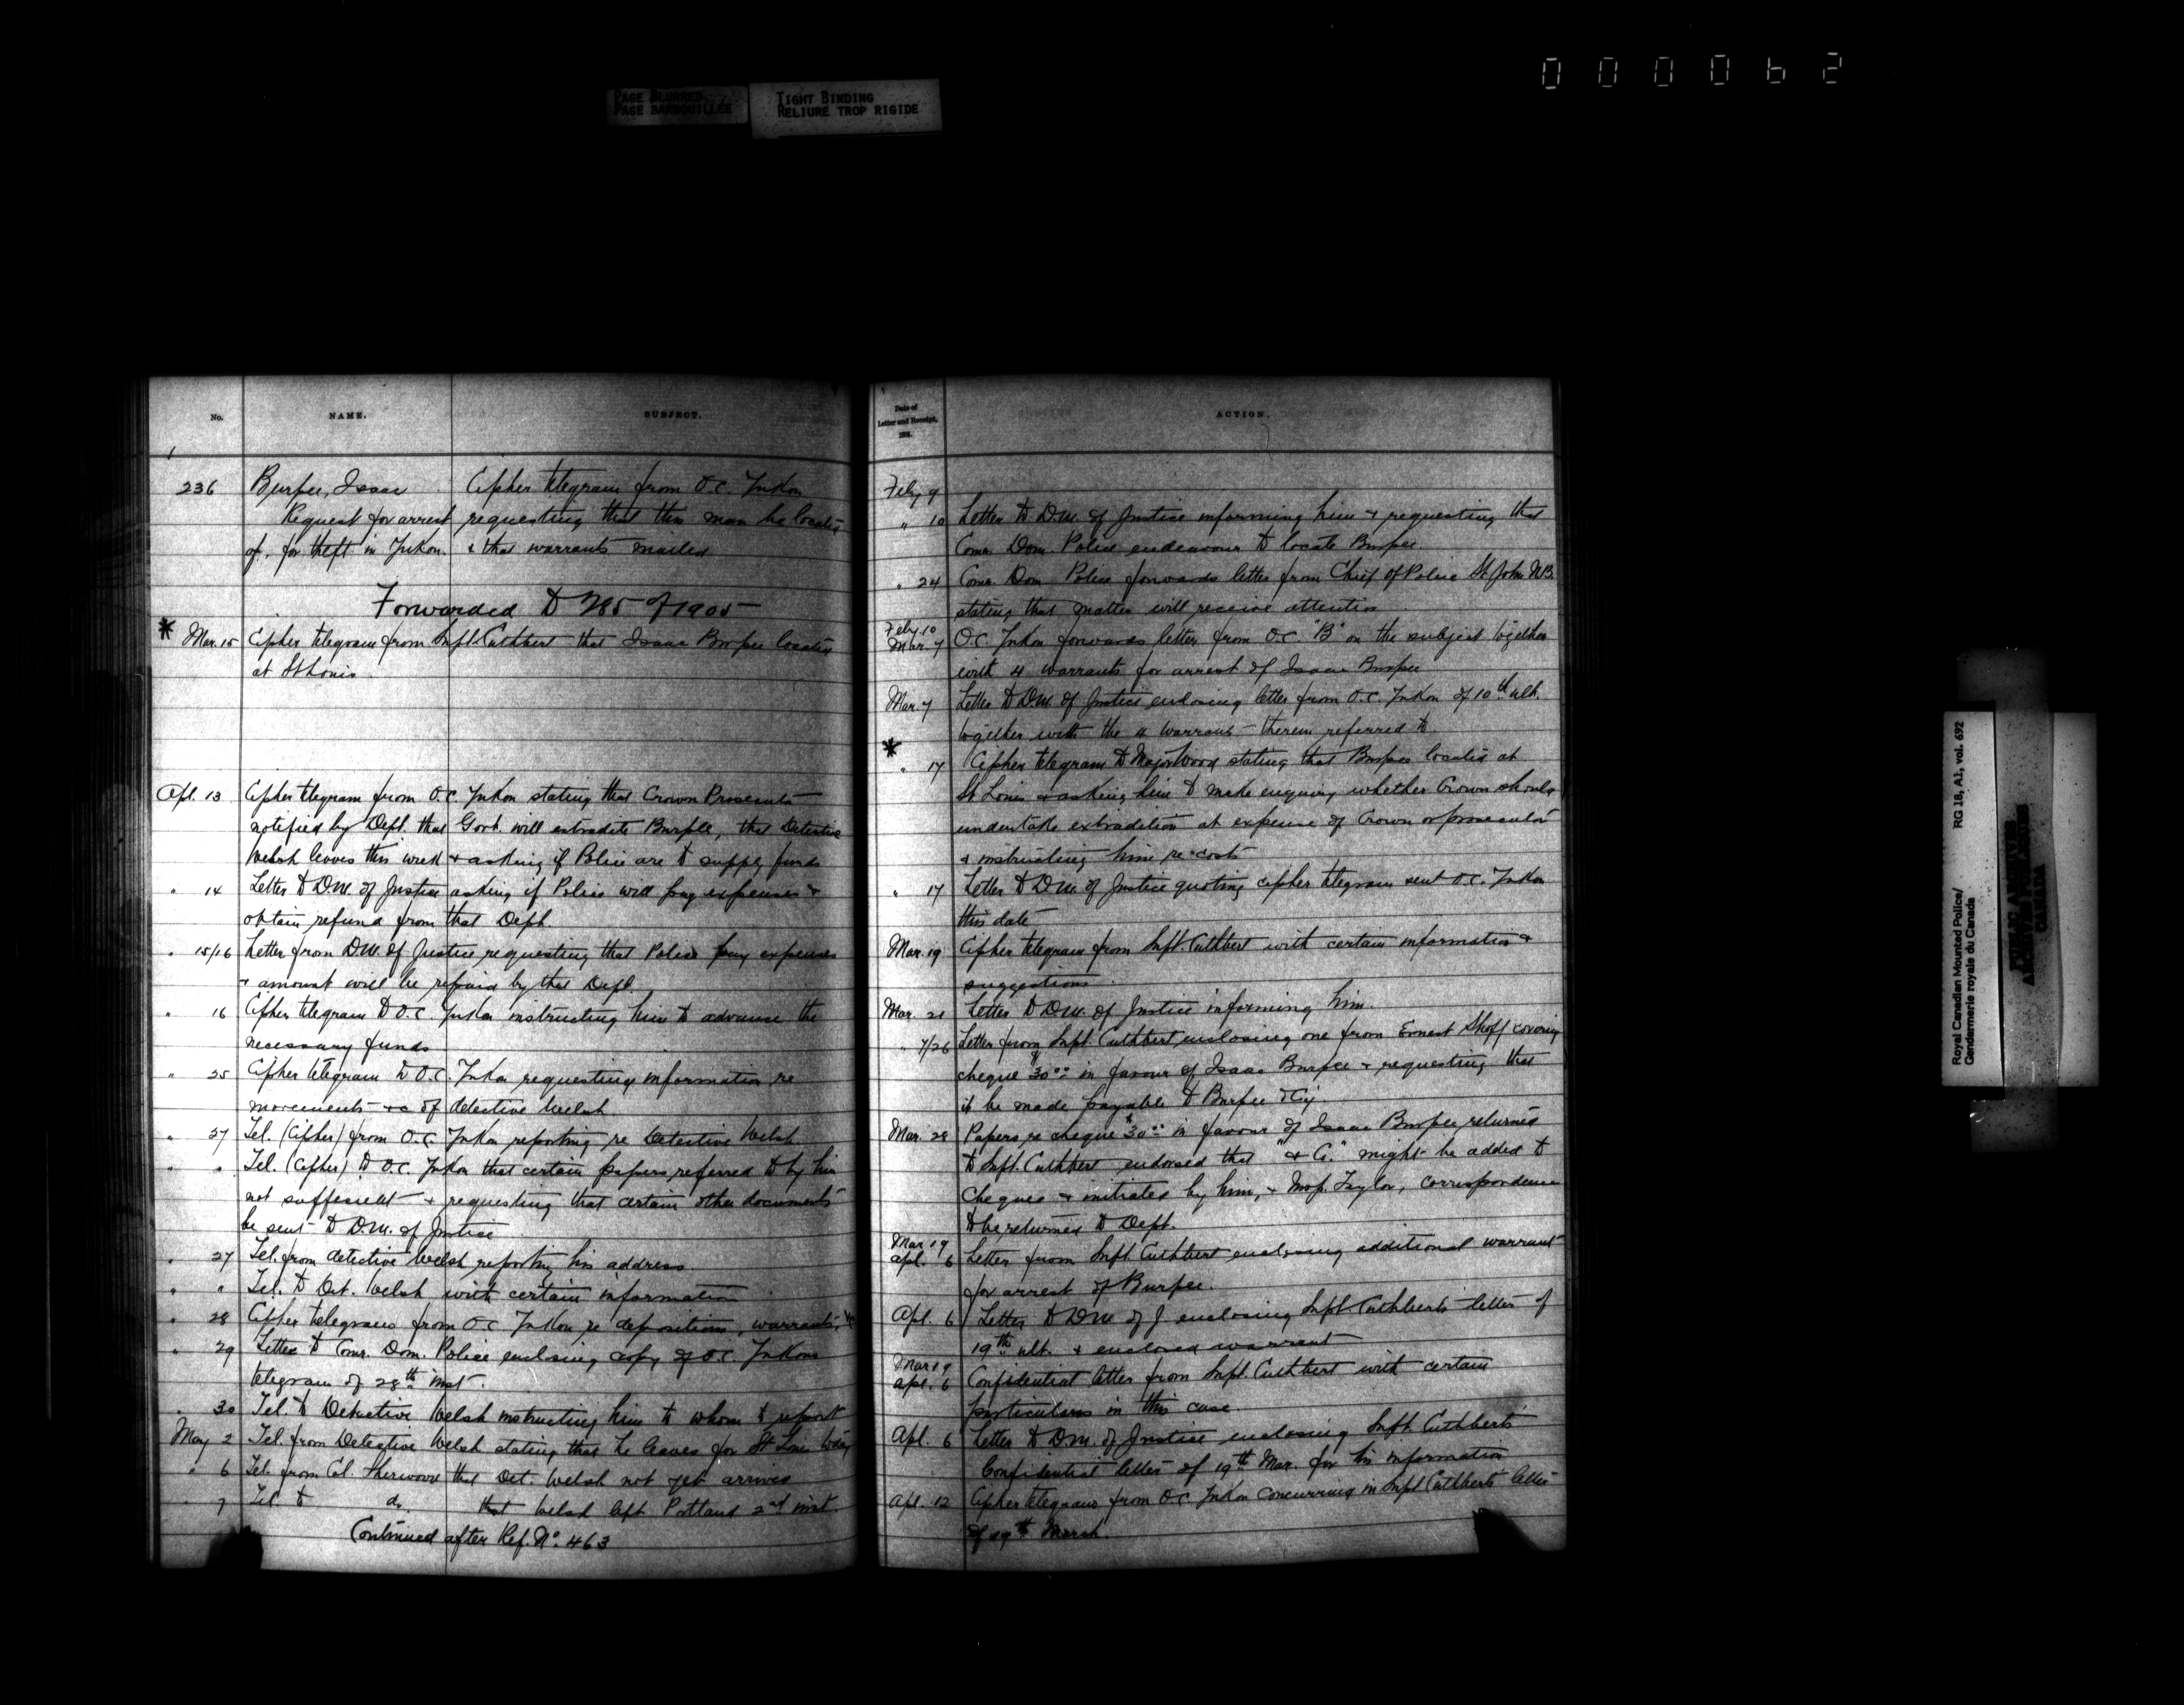 000062
PAGE BLURRED
PAGE BARBOUILLEE
TIGHT BINDING
RELIURE TROP RIGIDE
No.
NAME.
SUBJECT.
236
Burpee, Isaac
Cipher telegram from O.C. Yukon
Request for arrest requesting that this man be located
of, for theft in Yukon. & that warrants mailed
Forwarded to 285 of 1905
* Mar. 15 Cipher telegram from Supt. Cuthbert that Isaac Burpee located
at St Louis.
Apl. 13 Cipher telegram from O.C. Yukon stating that Crown Prosecutor
notified by Dept. that Govt. will extradite Burpee, that Detective
Welsh leaves this week & asking if Police are to supply funds
" 14 Letter to D.M. of Justice asking if Police will pay expenses &
obtain refund from that Dept.
" 15/16 Letter from D.M. of Justice requesting that Police pay expenses
& amount will be repaid by that Dept.
" 16 Cipher telegram to O.C. Yukon instructing him to advance the
necessary funds
" 25 Cipher telegram to O.C. Yukon requesting information re
movements &c of detective Welsh
" 27 Tel. (Cipher) from O.C. Yukon reporting re Detective Welsh
" " Tel. (cipher) to O.C. Yukon that certain papers referred to by him
not sufficient & requesting that certain other documents
be sent to D.M. of Justice
" 27 Tel. from detective Welsh reporting his address
" " Tel. to Det. Welsh with certain information
" 28 Cipher telegrams from O.C. Yukon re depositions, warrants, &c
" 29 Letter to Comr. Dom. Police enclosing copy of O.C. Yukons
telegram of 28th inst.
" 30 Tel. to Detective Welsh instructing him to whom to report
May 2 Tel. from Detective Welsh stating that he leaves for St Louis today
" 6 Tel. from Col. Sherwood that Det. Welsh not yet arrived
" 7 Tel. to do. that Welsh left Portland 2nd inst.
Continued after Ref. No. 463
Date of
Letter and Receipt,
1904.
ACTION.
Feby 9
" 10 Letter to D.M. of Justice informing him & requesting that
Comr. Dom. Police endeavour to locate Burpee.
" 24 Comr. Dom. Police forwards letter from Chief of Police St John N.B.
stating that matter will receive attention
Feby. 10
Mar. 7 O.C. Yukon forwards letter from O.C. "B" on the subject together
with 4 warrants for arrest of Isaac Burpee
Mar. 7 Letter to D.M. of Justice enclosing letter from O.C. Yukon of 10th ult.
together with the 4 warrants therein referred to.
*
" 17 Cipher telegram to Major Wood stating that Burpee located at
St Louis & asking him to make enquiry whether Crown should
undertake extradition at expense of Crown or prosecutor
& instructing him re costs
" 17 Letter to D.M. of Justice quoting cipher telegram sent O.C. Yukon
this date
Mar. 19 Cipher telegram from Supt. Cuthbert with certain information &
suggestions
Mar. 21 Letter to D.M. of Justice informing him.
" 7/26 Letter from Supt. Cuthbert enclosing one from Ernest covering
cheque $30.00 in favour of Isaac Burpee & requesting that
it be made payable to Burpee & Co.
Mar. 28 Papers re cheque $30.00 in favour of Isaac Burpee returned
to Supt. Cuthbert endorsed that "& Co." might be added to
cheques & initialed by him, & Taylor, correspondence
to be returned to Dept.
Mar 19
Apl. 6 Letter from Supt. Cuthbert enclosing additional warrant
for arrest of Burpee.
Apl. 6 Letter to D.M. of J. enclosing Supt. Cuthberts letter of
19th ult. & enclosed warrant
Mar 19
Apl. 6 Confidential letter from Supt. Cuthbert with certain
particulars in this case
Apl. 6 Letter to D.M. of Justice enclosing Supt. Cuthberts
Confidential letter of 19th Mar. for his information
Apl. 12 Cipher telegram from O.C. Yukon concurring in Supt. Cuthberts letter
of 19th March.
Royal Canadian Mounted Police/
Gendarmerie royale du Canada
RG 18, A1, vol. 692
PUBLIC ARCHIVES
ARCHIVES PUBLIQUES
CANADA